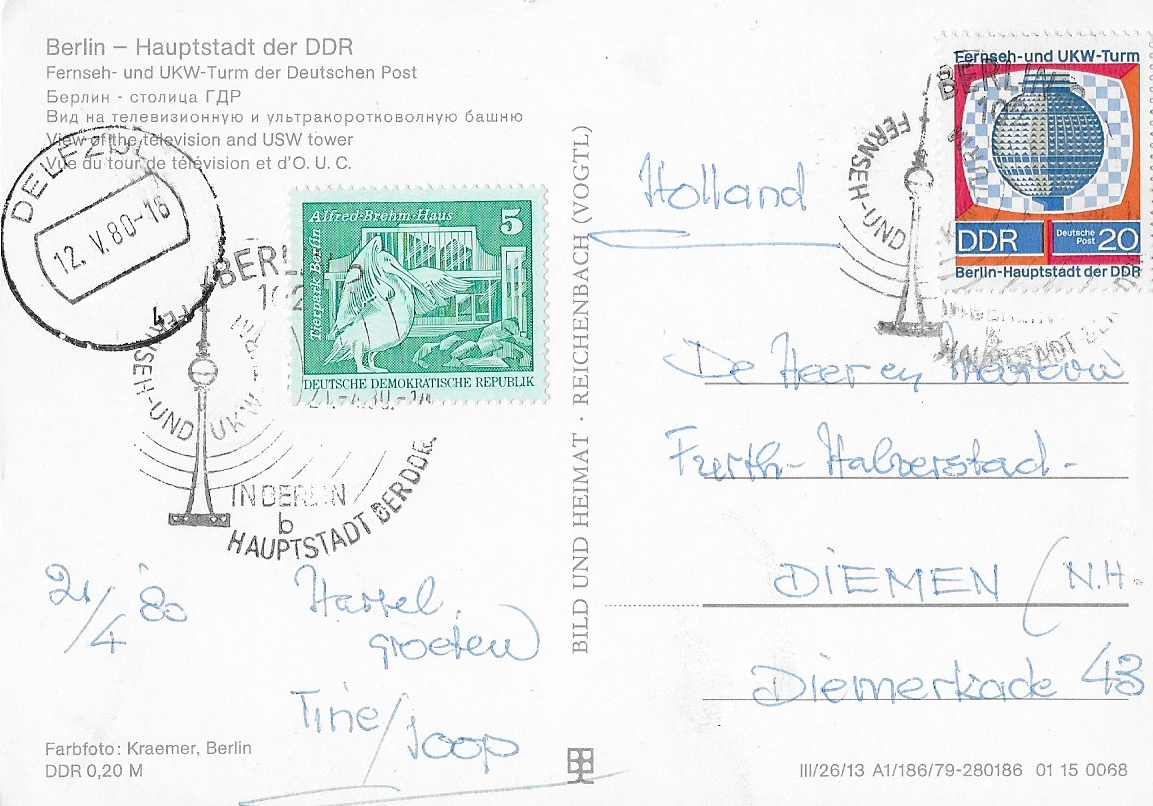 Berlin – Hauptstadt der DDR
Fernseh- und UKW-Turm der Deutschen Post
Берлин - столица ГДР
Вид на телевизионную и ультракоротковолную башню
View of the television and USW tower
Vue du tour de télévision et d'O. U. C.
12. V. 80-16
4
BERLIN
102
FERNSEH-UND UKW-TURM
IN BERLIN
b
HAUPTSTADT DER DDR
Alfred-Brehm-Haus
5
Tierpark Berlin
DEUTSCHE DEMOKRATISCHE REPUBLIK
21/4 '80
Hartel.
groeten
Tine/Joop
Farbfoto: Kraemer, Berlin
DDR 0,20 M
BILD UND HEIMAT · REICHENBACH (VOGTL)
Fernseh-und UKW-Turm
DDR
Deutsche
Post
20
Berlin-Hauptstadt der DDR
BERLIN
FERNSEH-UND
TURM
HAUPTSTADT DER
Holland
De Heer en Mevrouw
Furth-Halverstad-
DIEMEN (N.H.
Diemerkade 43
III/26/13 A1/186/79-280186 01 15 0068